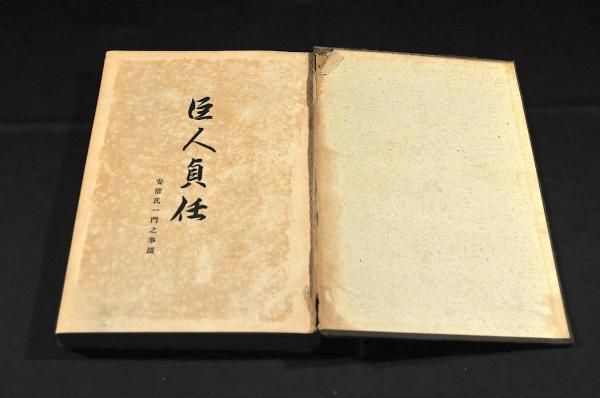 巨人貞任
安倍氏一門之事蹟